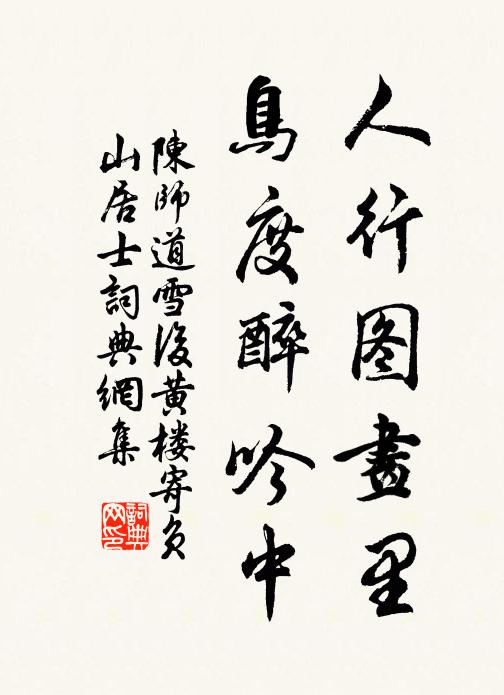 人行图畫里
鳥度醉吟中
陳師道雪後黄楼寄负
山居士詞典網集
詞典
网印